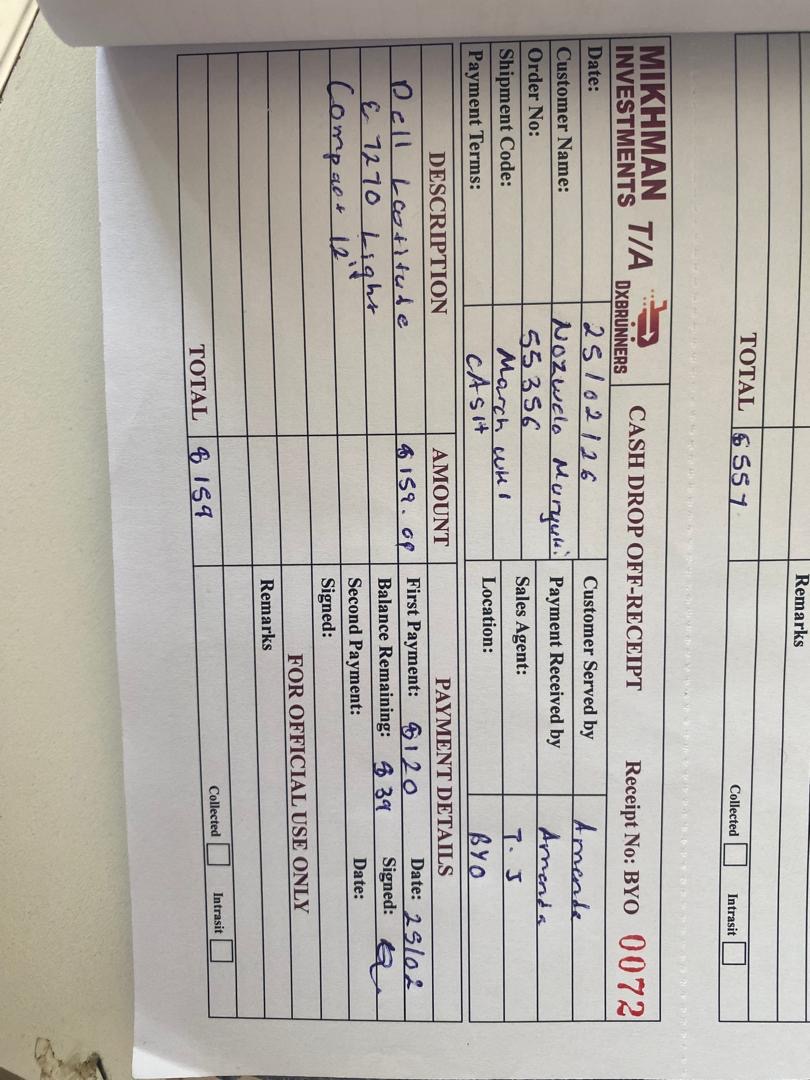 TOTAL $557
Remarks
Collected Intrasit
MIKHMAN T/A
INVESTMENTS DXBRUNNERS
CASH DROP OFF-RECEIPT Receipt No: BYO 0072
Date: 25/02/26 Customer Served by Amanda
Customer Name: Payment Received by Amanda
Order No: 55356 Sales Agent: T.J
Shipment Code: March WK1 Location: BYO
Payment Terms: CASH
DESCRIPTION AMOUNT PAYMENT DETAILS
Dell Latitude $159.00 First Payment: $120 Date: 25/02
E7270 Light Balance Remaining: $39 Signed:
Compact 12" Second Payment: Date:
Signed:
FOR OFFICIAL USE ONLY
Remarks
TOTAL $159 Collected Intrasit